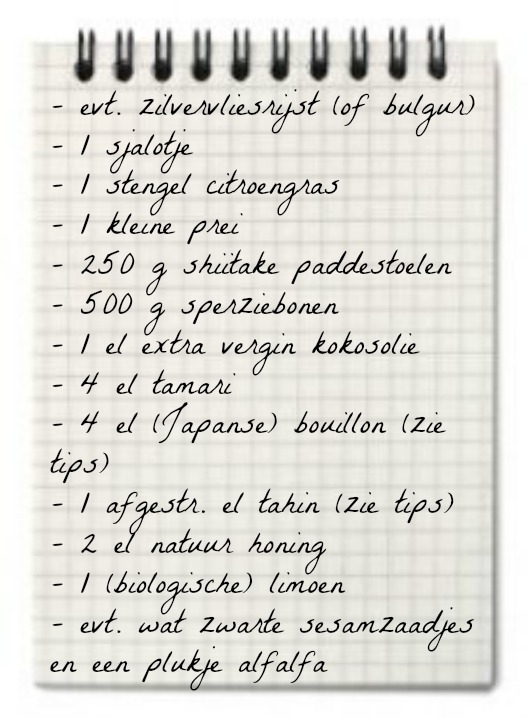 - evt. zilvervliesrijst (of bulgur)
- 1 sjalotje
- 1 stengel citroengras
- 1 kleine prei
- 250 g shiitake paddestoelen
- 500 g sperziebonen
- 1 el extra vergin kokosolie
- 4 el tamari
- 4 el (Japanse) bouillon (zie
tips)
- 1 afgestr. el tahin (zie tips)
- 2 el natuur honing
- 1 (biologische) limoen
- evt. wat zwarte sesamzaadjes
en een plukje alfalfa